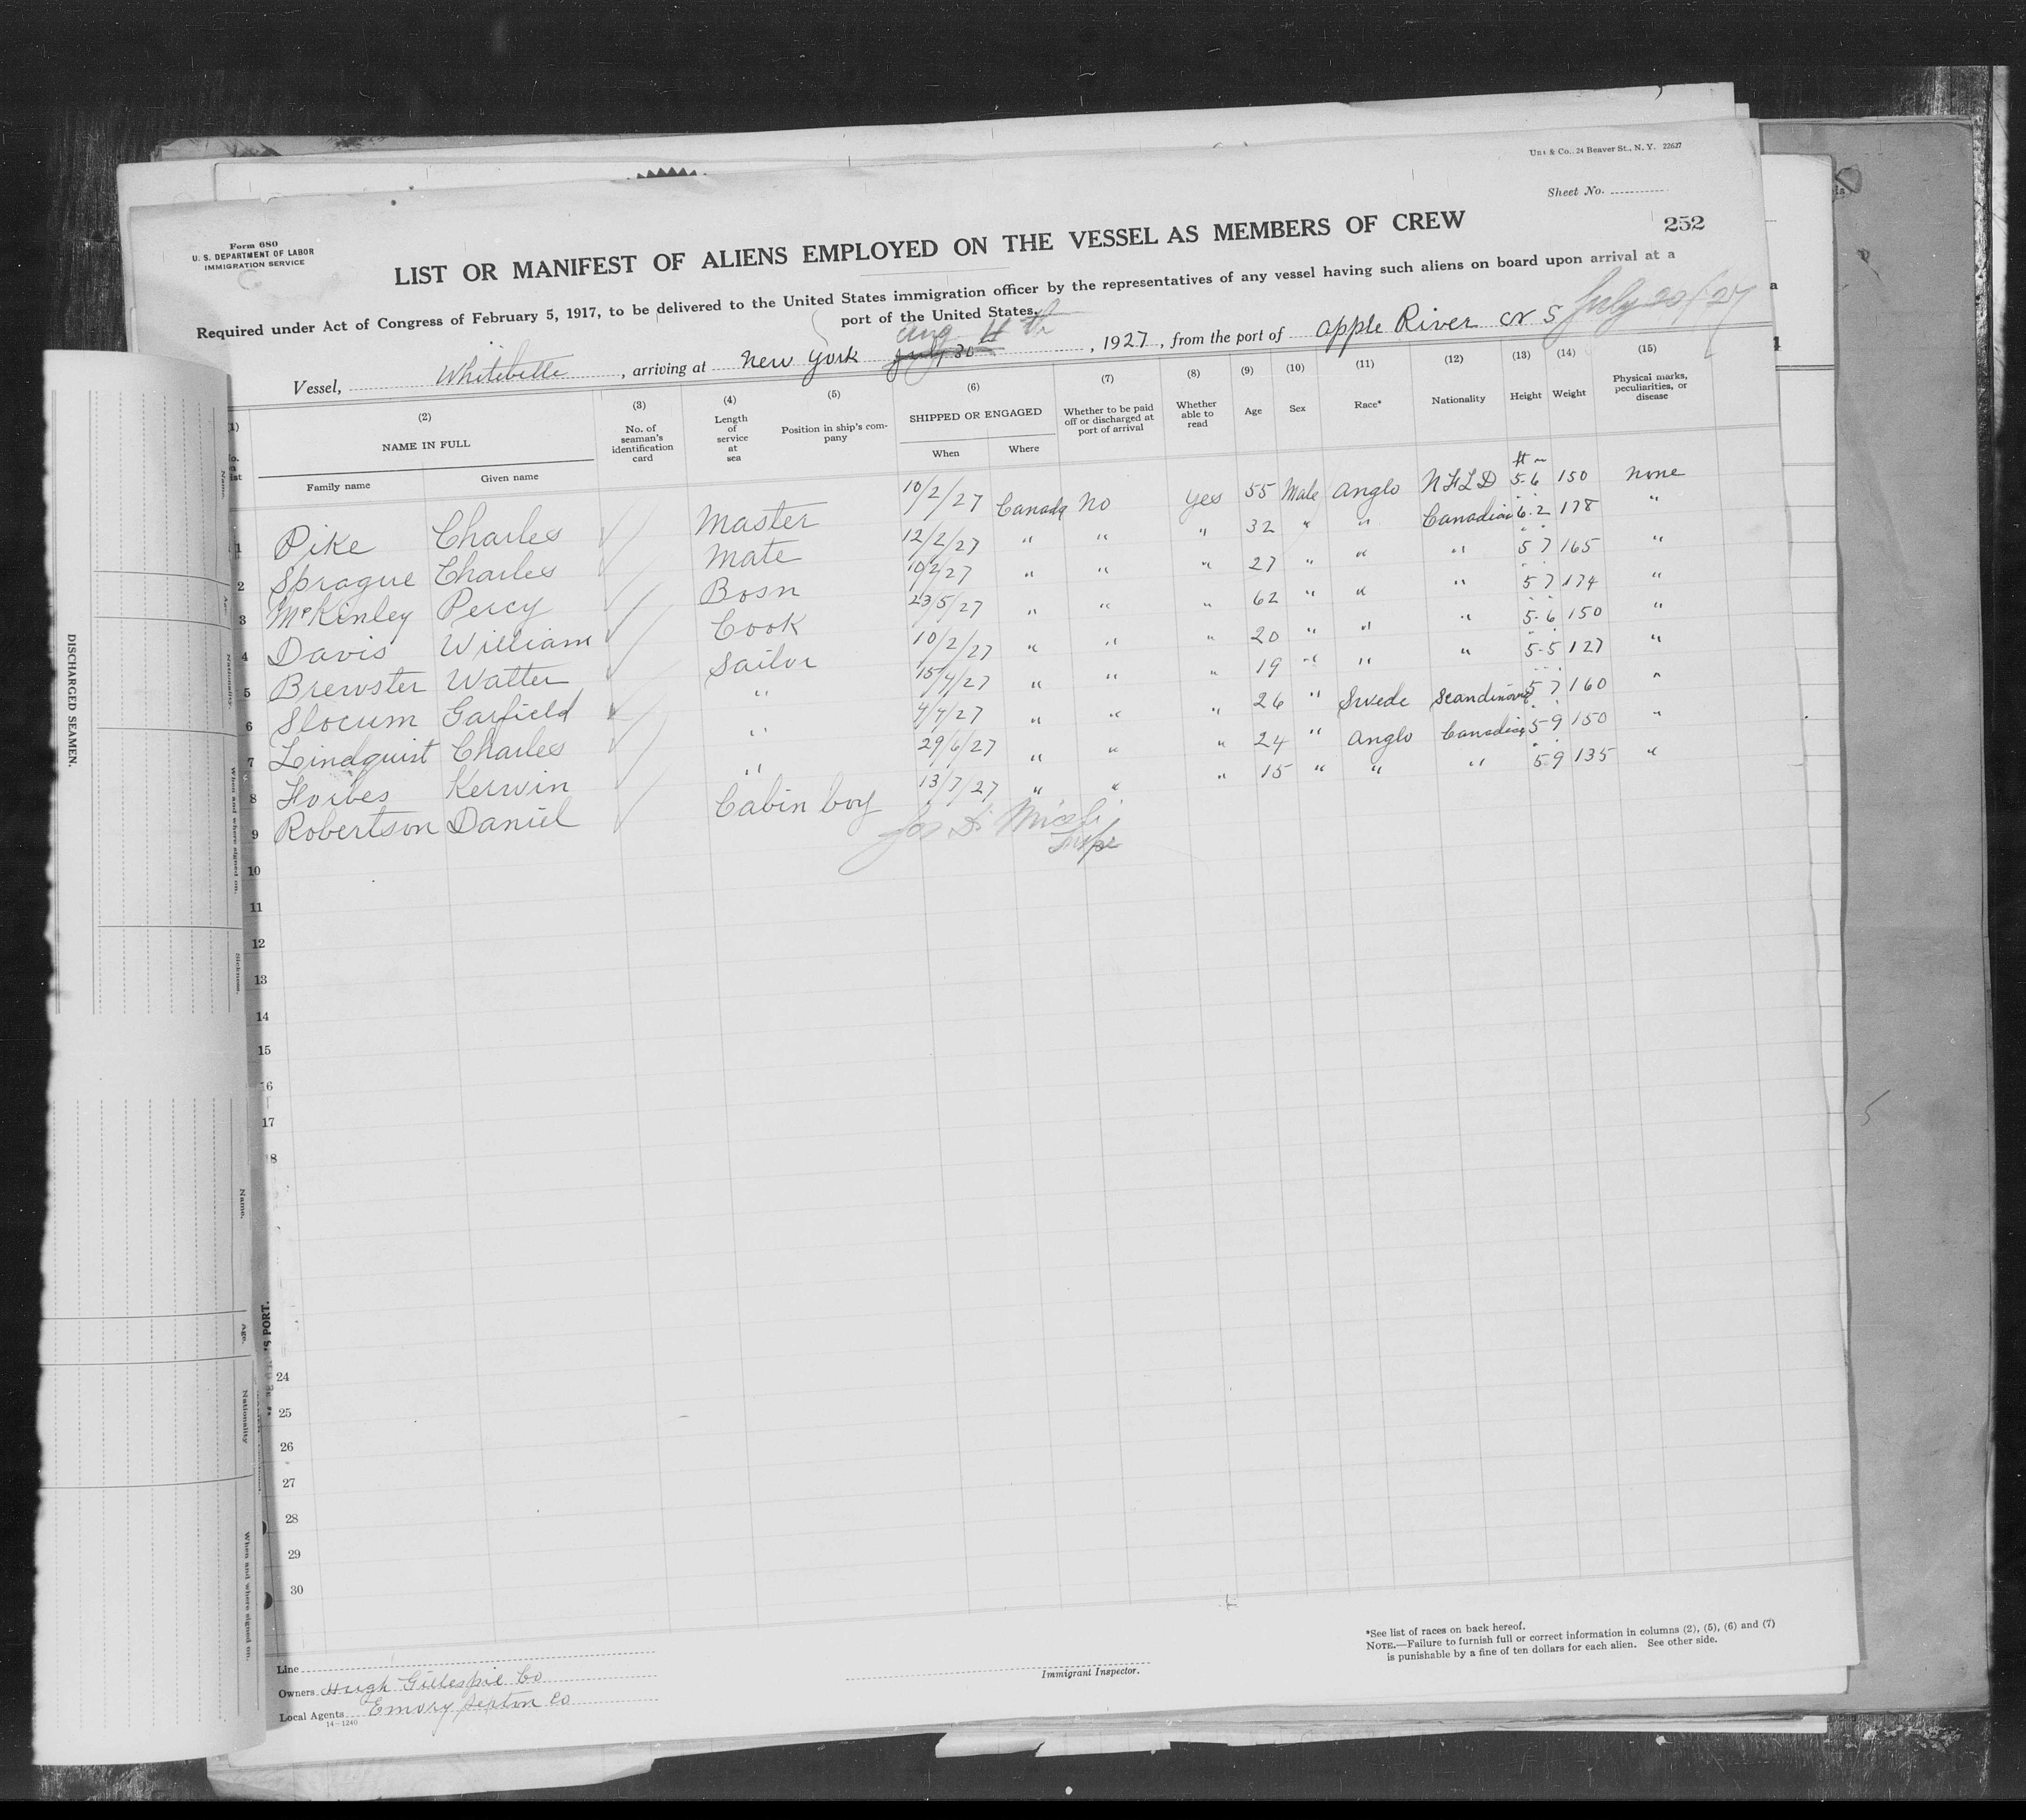 Unz & Co., 24 Beaver St., N. Y. 22627
Sheet No.
252
Form 680
U. S. DEPARTMENT OF LABOR
IMMIGRATION SERVICE
LIST OR MANIFEST OF ALIENS EMPLOYED ON THE VESSEL AS MEMBERS OF CREW
Required under Act of Congress of February 5, 1917, to be delivered to the United States immigration officer by the representatives of any vessel having such aliens on board upon arrival at a
port of the United States.
Aug 4th July 20/27
Vessel, Whitebelle, arriving at New York July 30, 1927, from the port of Apple River N S
(1) (2) (3) (4) (5) (6) (7) (8) (9) (10) (11) (12) (13) (14) (15)
NAME IN FULL
Family name Given name
No. of seaman's identification card
Length of service at sea
Position in ship's company
SHIPPED OR ENGAGED
When Where
Whether to be paid off or discharged at port of arrival
Whether able to read
Age
Sex
Race*
Nationality
Height
Weight
Physical marks, peculiarities, or disease
1 Pike Charles Master 10/2/27 Canada No Yes 55 Male Anglo NFLD 5-6 150 None
2 Sprague Charles Mate 12/2/27 " " " 32 " " Canadian 6-2 178 "
3 McKinley Percy Bosn 10/2/27 " " " 27 " " " 5 7 165 "
4 Davis William Cook 23/5/27 " " " 62 " " " 5 7 174 "
5 Brewster Walter Sailor 10/2/27 " " " 20 " " " 5-6 150 "
6 Slocum Garfield " 15/4/27 " " " 19 " " " 5-5 127 "
7 Lindquist Charles " 4/4/27 " " " 26 " Swede Scandinavia 5 7 160 "
8 Forbes Kerwin " 29/6/27 " " " 24 " Anglo Canadian 5-9 150 "
9 Robertson Daniel Cabin boy 13/7/27 " " " 15 " " " 5 9 135 "
10
11
12
13
14
15
16
17
8
24
25
26
27
28
29
30
Line
Owners Hugh Gillespie Co
Local Agents Emory Sexton Co
14-1240
Immigrant Inspector.
*See list of races on back hereof.
NOTE.—Failure to furnish full or correct information in columns (2), (5), (6) and (7)
is punishable by a fine of ten dollars for each alien. See other side.
DISCHARGED SEAMEN.
Name.
Age.
Nationality.
When and where signed on.
Sickness.
Name.
Age.
Nationality
When and where signed on.
'S PORT.